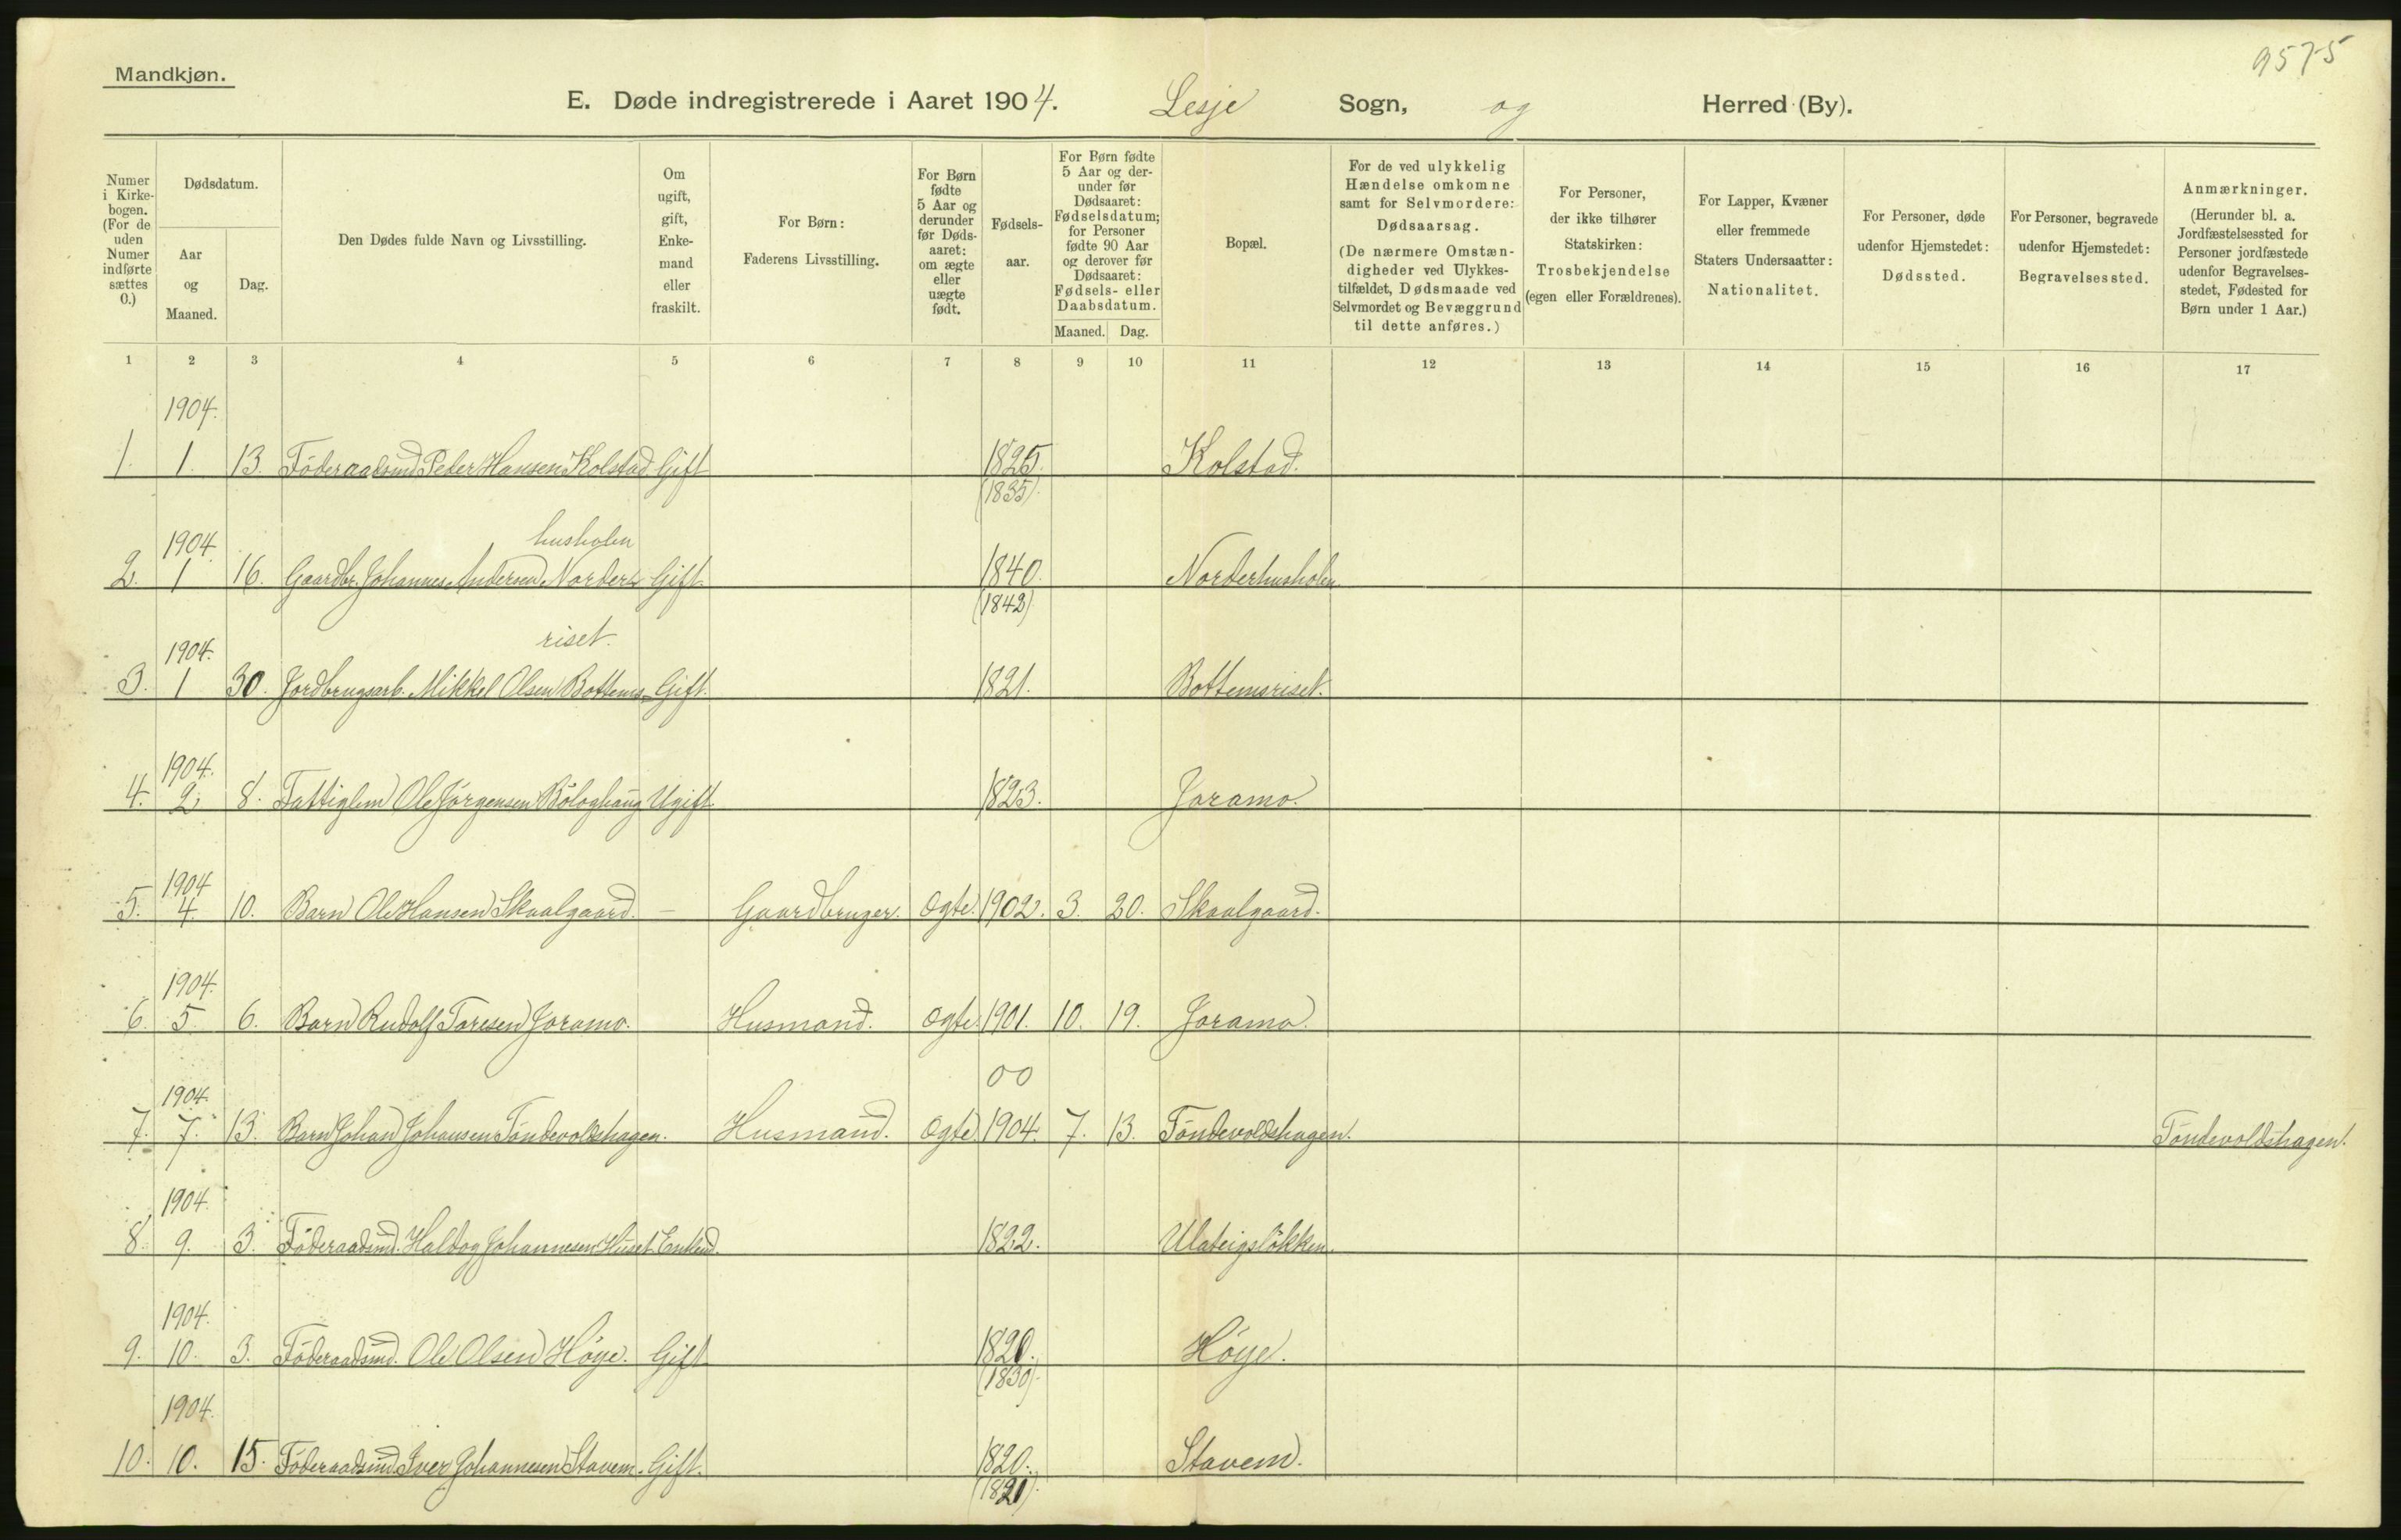 9575
Mandkjøn.
E. Døde indregistrerede i Aaret 1904. Lesje Sogn, og Herred (By).
Numer i Kirkebogen. (For de uden Numer indførte sættes 0.)
Dødsdatum.
Aar og Maaned.
Dag.
Den Dødes fulde Navn og Livsstilling.
Om ugift, gift, Enkemand eller fraskilt.
For Børn: Faderens Livsstilling.
For Børn fødte 5 Aar og derunder før Dødsaaret: om ægte eller uægte født.
Fødselsaar.
For Børn fødte 5 Aar og derunder før Dødsaaret: Fødselsdatum; for Personer fødte 90 Aar og derover før Dødsaaret: Fødsels- eller Daabsdatum.
Maaned. Dag.
Bopæl.
For de ved ulykkelig Hændelse omkomne samt for Selvmordere: Dødsaarsag. (De nærmere Omstændigheder ved Ulykkestilfældet, Dødsmaade ved Selvmordet og Bevæggrund til dette anføres.)
For Personer, der ikke tilhører Statskirken: Trosbekjendelse (egen eller Forældrenes).
For Lapper, Kvæner eller fremmede Staters Undersaatter: Nationalitet.
For Personer, døde udenfor Hjemstedet: Dødssted.
For Personer, begravede udenfor Hjemstedet: Begravelsessted.
Anmærkninger. (Herunder bl. a. Jordfæstelsessted for Personer jordfæstede udenfor Begravelsesstedet, Fødested for Børn under 1 Aar.)
1 2 3 4 5 6 7 8 9 10 11 12 13 14 15 16 17
1904.
1. 1. 13. Föderaadsmd. Peder Hansen Kolstad. Gift 1825. Kolstad.
(1835).
1904. husholen
2. 1 16. Gaardbr. Johannes Andersen Norder- Gift. 1840. Norderhusholen.
(1842)
1904. riset.
3. 1 30. Jordbrugsarb. Mikkel Olsen Bottems- Gift. 1821. Bottemsriset.
1904.
4. 2. 8. Fattiglem Ole Jörgensen Böloghaug Ugift. 1823. Joramo.
1904
5. 4. 10. Barn Ole Hansen Skaalgaard. — Gaardbruger. Ægte. 1902. 3. 20. Skaalgaard.
1904.
6. 5. 6. Barn Rudolf Toresen Joramo. Husmand. Ægte. 1901. 10. 19. Joramo.
00
1904.
7. 7. 13. Barn Johan Johansen Töndevoldshagen. Husmand. Ægte. 1904. 7. 13. Töndevoldshagen. Töndevoldshagen.
1904.
8. 9. 3. Föderaadsmd. Haldog Johannesen Huset. Enkemd. 1822. Ulateigslökken.
1904.
9. 10. 3. Föderaadsmd. Ole Olsen Höye. Gift 1820. Höye.
(1830).
1904.
10. 10. 15. Föderaadsmd. Iver Johannesen Stavem. Gift. 1820. Stavem.
(1821).